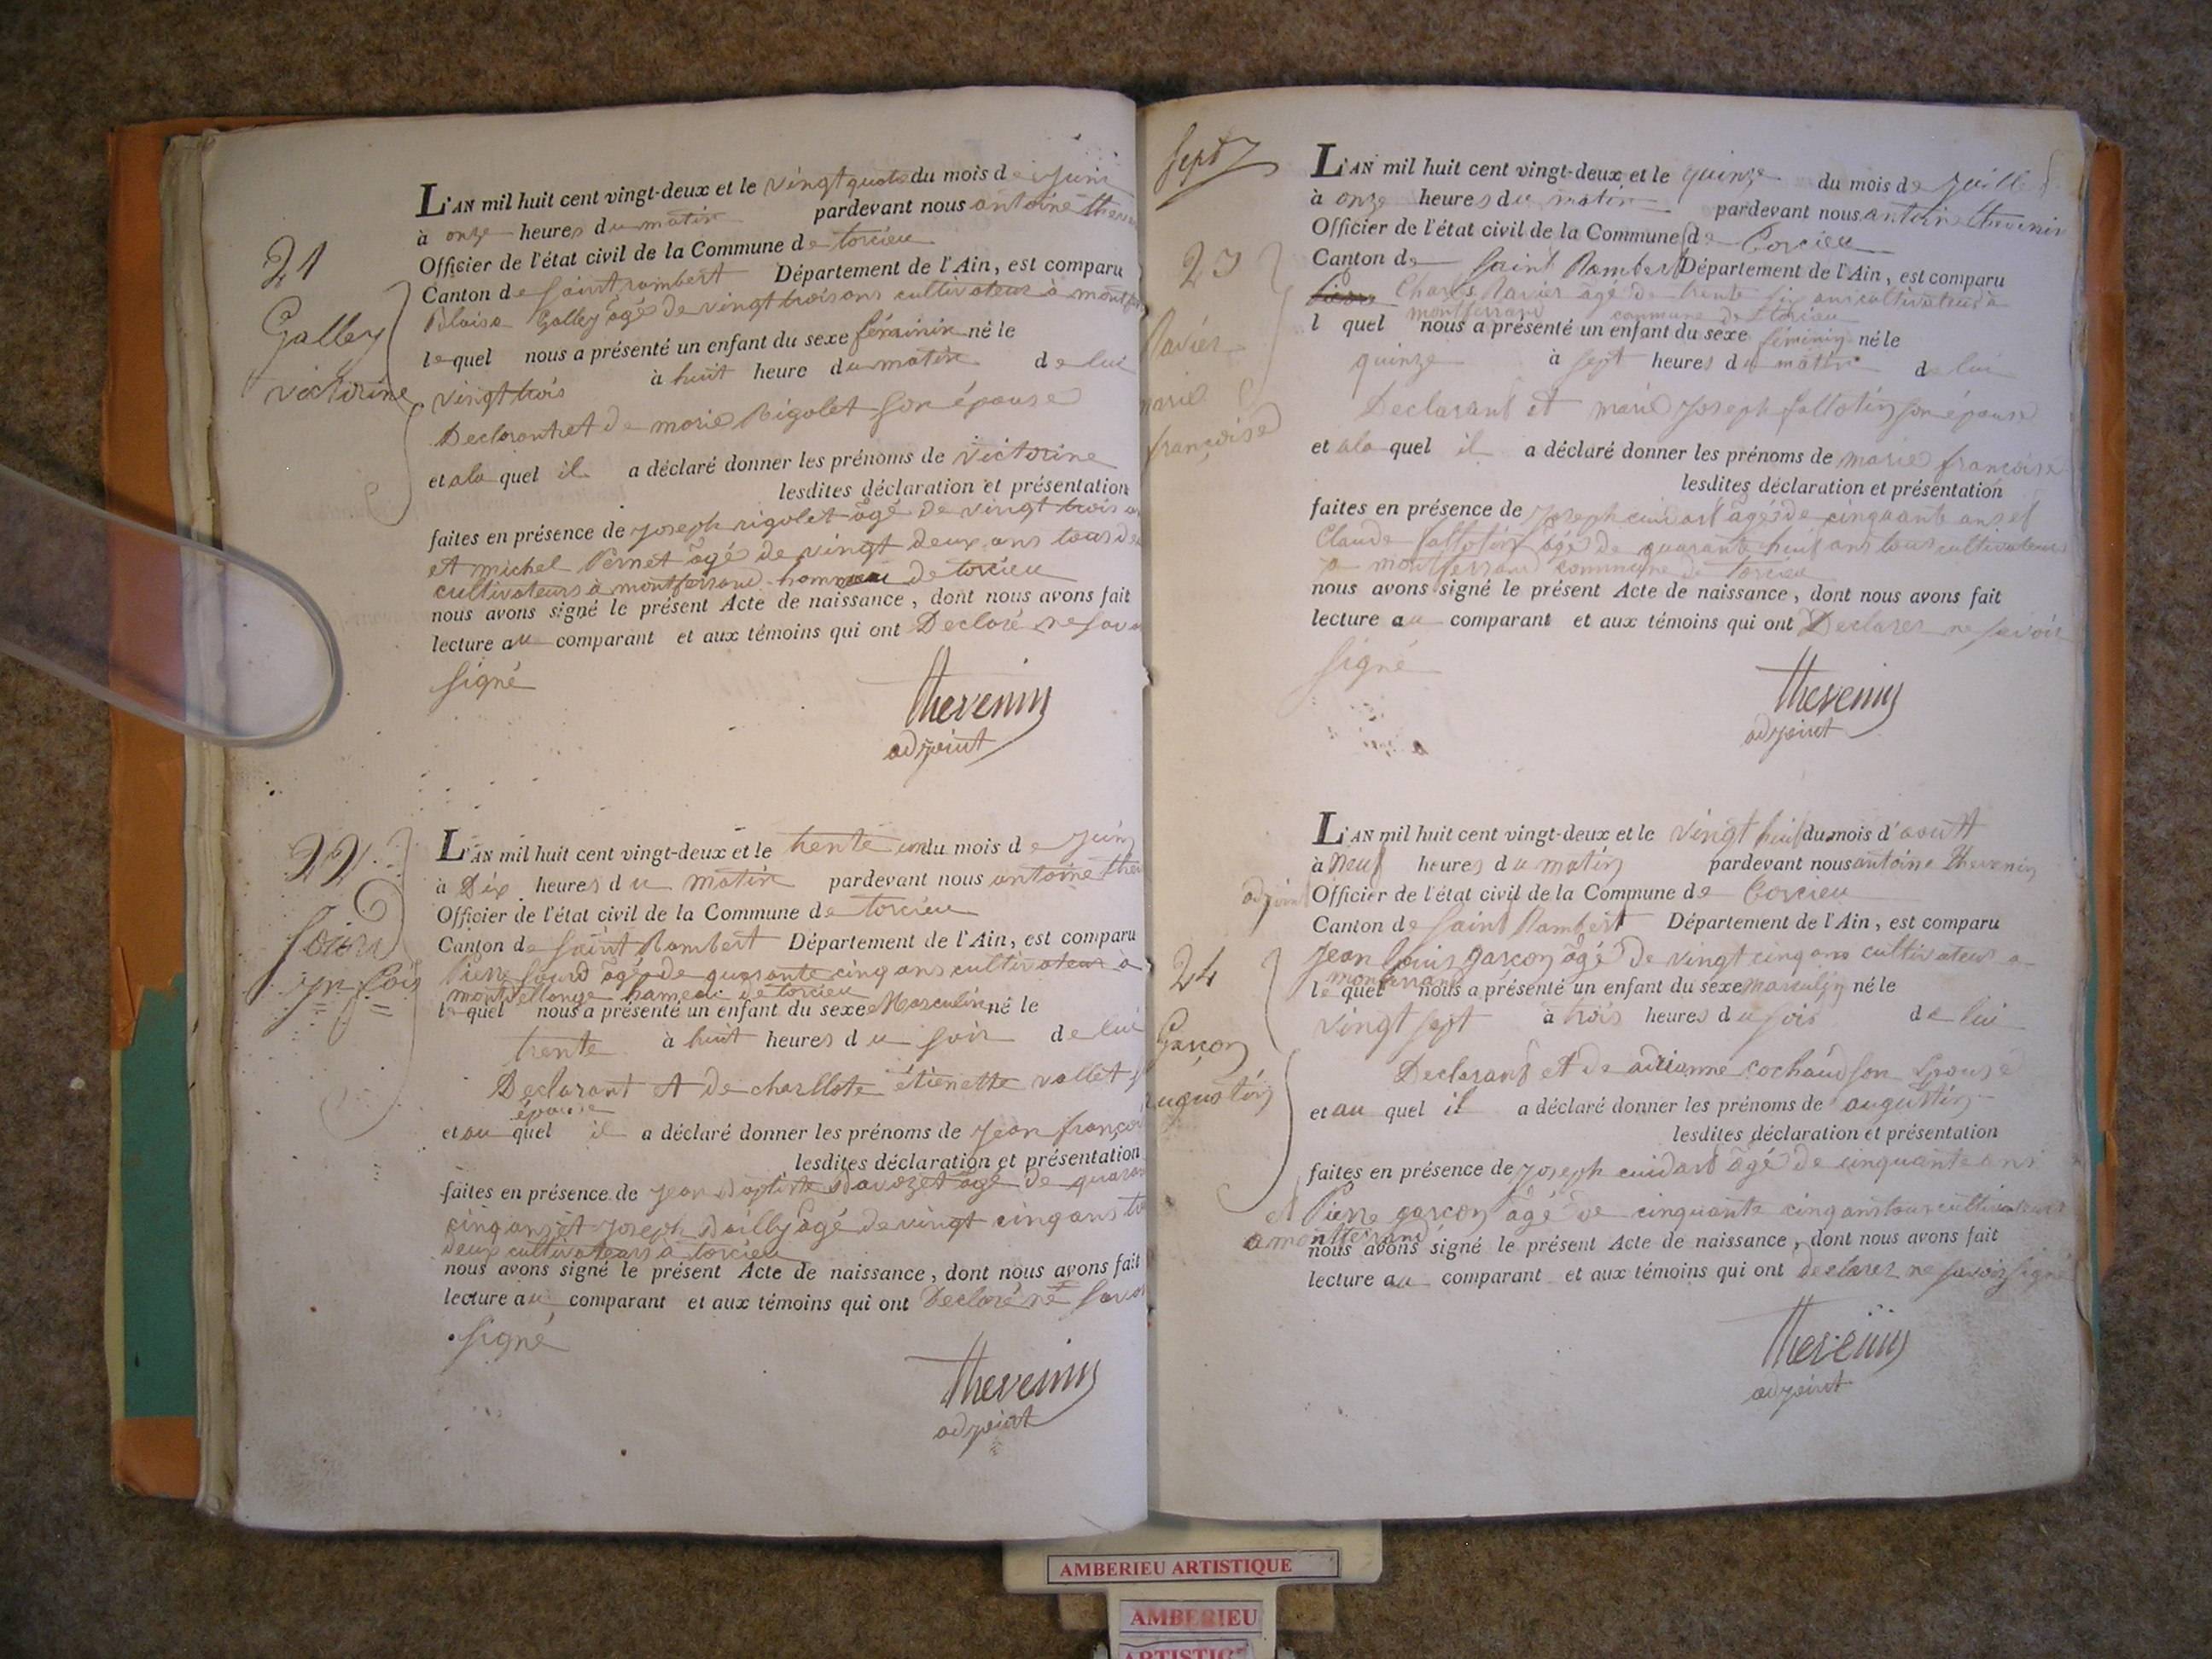 21
Galley
victorine
L'AN mil huit cent vingt-deux et le vingt quatre du mois de juin
à onze heures du matin pardevant nous antoine
Officier de l'état civil de la Commune de torcieu
Canton de saint rambert Département de l'Ain, est comparu
Blaise Galley âgé de vingt trois ans cultivateur à
lequel nous a présenté un enfant du sexe féminin né le
vingt trois à huit heure du matin de lui
Declarant et de marie Rigolet son épouse
et a la quel il a déclaré donner les prénoms de victorine
lesdites déclaration et présentation
faites en présence de joseph rigolet âgé de vingt trois
et michel Pernet âgé de vingt deux ans tous
cultivateurs à montferrand hameau de torcieu
nous avons signé le présent Acte de naissance, dont nous avons fait
lecture au comparant et aux témoins qui ont Declaré ne
signé
thevenin
adjoint
22
L'AN mil huit cent vingt-deux et le trente un du mois de juin
à Dix heures du matin pardevant nous antoine
Officier de l'état civil de la Commune de torcieu
Canton de saint Rambert Département de l'Ain, est comparu
Pierre âgé de quarante cinq ans cultivateur a
hameau de torcieu
l quel nous a présenté un enfant du sexe Masculin né le
trente à huit heures du soir de lui
Declarant et de charllote étienette vallet
épouse
et au quel il a déclaré donner les prénoms de jean
lesdites déclaration et présentation
faites en présence de jean Baptiste âgé de
cinq ans et joseph Bailly âgé de vingt cinq ans
deux cultivateurs à torcieu
nous avons signé le présent Acte de naissance, dont nous avons fait
lecture au comparant et aux témoins qui ont Declaré ne
signé
thevenin
adjoint
23
Ravier
marie
françoise
L'AN mil huit cent vingt-deux et le quinze du mois de
à onze heures du matin pardevant nous antoine thevenin
Officier de l'état civil de la Commune de torcieu
Canton de Saint Rambert Département de l'Ain, est comparu
Charles Ravier âgé de trente six ans cultivateur à
montferrand commune de torcieu
l quel nous a présenté un enfant du sexe féminin né le
quinze à sept heures du matin de lui
Declarant et marie joseph son épouse
et a la quel il a déclaré donner les prénoms de marie françoise
lesdites déclaration et présentation
faites en présence de joseph cuidart âgé de cinquante ans et
Claude âgé de quarante huit ans tous cultivateurs
a montferrand commune de torcieu
nous avons signé le présent Acte de naissance, dont nous avons fait
lecture au comparant et aux témoins qui ont Declarer ne savoir
signé
thevenin
adjoint
24
Garçon
augustin
L'AN mil huit cent vingt-deux et le vingt huit du mois d'aoutt
à neuf heures du matin pardevant nous antoine thevenin
adjoint Officier de l'état civil de la Commune de torcieu
Canton de Saint Rambert Département de l'Ain, est comparu
jean louis garçon âgé de vingt cinq ans cultivateur a
montferrand
le quel nous a présenté un enfant du sexe masculin né le
vingt sept à trois heures du soir de lui
Declarant et de son épouse
et au quel il a déclaré donner les prénoms de augustin
lesdites déclaration et présentation
faites en présence de joseph cuidart âgé de cinquante ans
et Pierre garçon âgé de cinquante cinq ans tous cultivateurs
a montferrand
nous avons signé le présent Acte de naissance, dont nous avons fait
lecture au comparant et aux témoins qui ont declarer ne savoir signé
thevenin
adjoint
AMBERIEU ARTISTIQUE
AMBERIEU